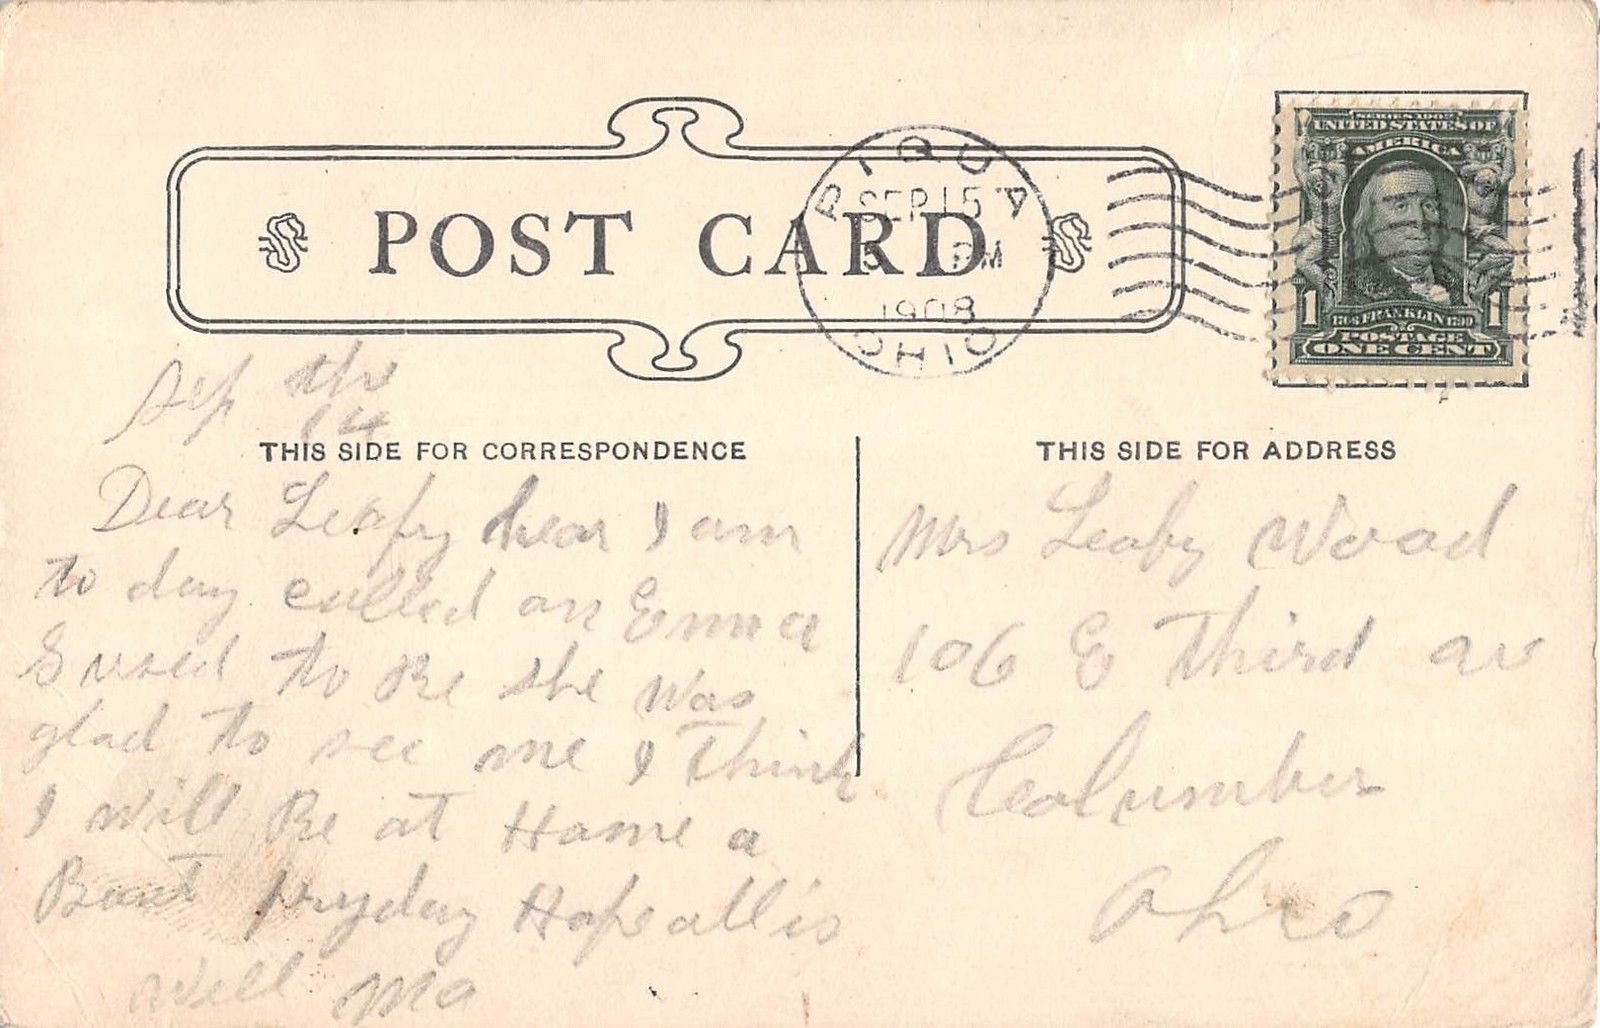 POST CARD
PIQUA
SEP 15
PM
1908
OHIO
SERIES 1902
UNITED STATES OF
AMERICA
1 FRANKLIN 1
POSTAGE
ONE CENT
Sep 14 th
THIS SIDE FOR CORRESPONDENCE
Dear Leafy hear I am
to day called on Emma
S used to Be she was
glad to see me I Think
I will Be at Home a
Bout fryday Hope all is
well Ma
THIS SIDE FOR ADDRESS
Mrs Leafy Wood
106 E Third av
Columbus
Ohio